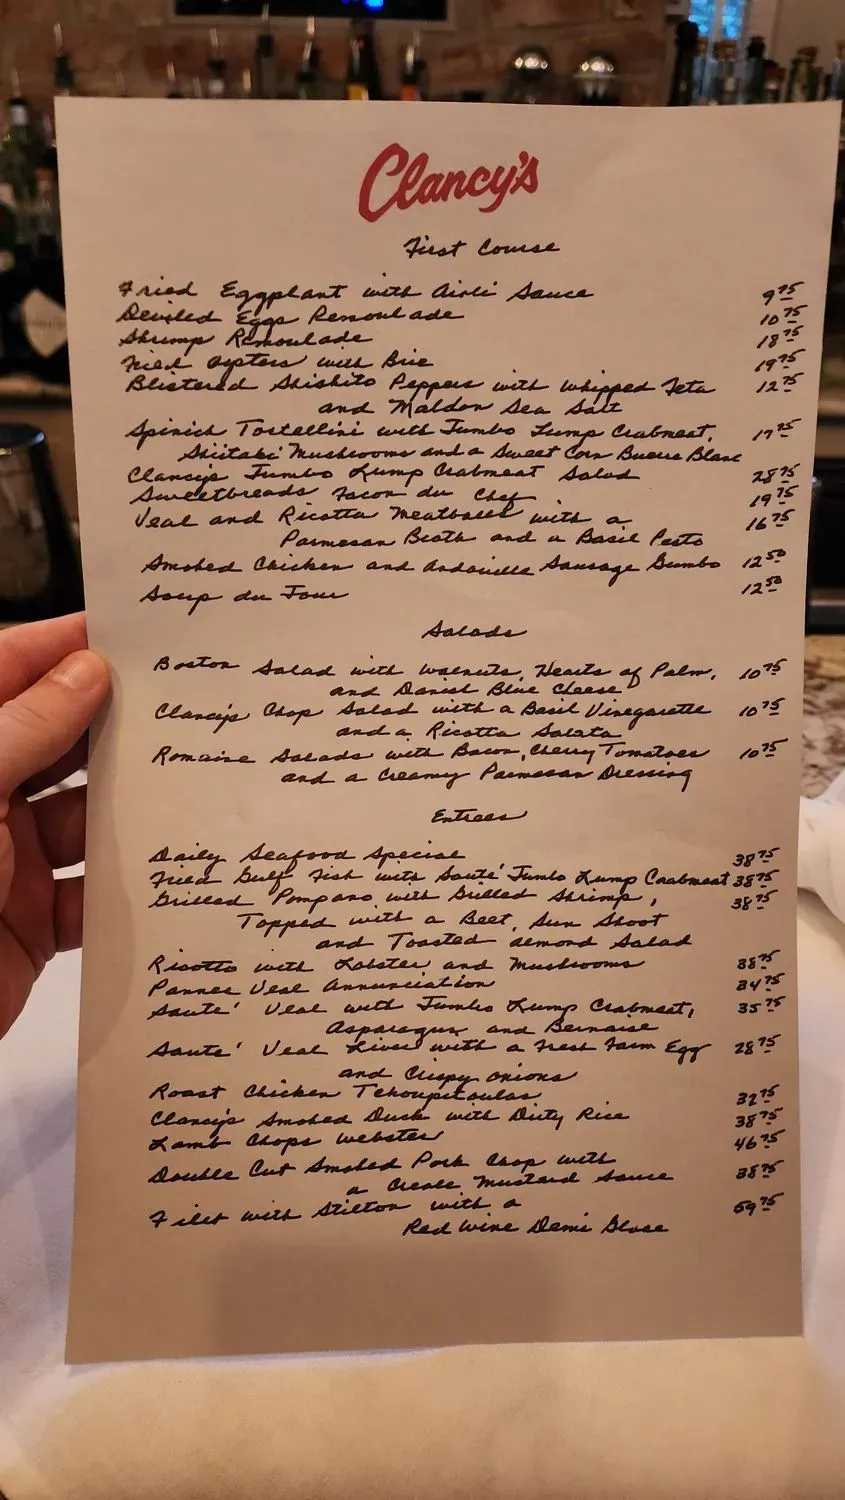 Clancy's
First Course
Fried Eggplant with Aioli Sauce 9 75
Deviled Eggs Remoulade 10 75
Shrimp Remoulade 18 75
Fried Oysters with Brie 19 75
Blistered Shishito Peppers with Whipped Feta 12 75
and Maldon Sea Salt
Spinich Tortellini with Jumbo Lump Crabmeat, 17 75
Shiitake Mushrooms and a Sweet Corn Buerre Blanc
Clancy's Jumbo Lump Crabmeat Salad 28 75
Sweetbreads Facon du Chef 19 75
Veal and Ricotta Meatballs with a 16 75
Parmesan Broth and a Basil Pesto
Smoked Chicken and Andouille Sausage Gumbo 12 50
Soup du Jour 12 50
Salads
Boston Salad with Walnuts, Hearts of Palm, 10 75
and Danish Blue Cheese
Clancy's Chop Salad with a Basil Vinegarette 10 75
and a Ricotta Salata
Romaine Salads with Bacon, Cherry Tomatoes 10 75
and a Creamy Parmesan Dressing
Entrees
Daily Seafood Special 38 75
Fried Gulf Fish with Sauté Jumbo Lump Crabmeat 38 75
Grilled Pompano with Grilled Shrimp, 38 75
Topped with a Beet, Sun Shoot
and Toasted Almond Salad
Risotto with Lobster and Mushrooms 38 75
Pannee Veal Annunciation 34 75
Sauté Veal with Jumbo Lump Crabmeat, 35 75
Asparagus and Bernaise
Sauté Veal Liver with a Fresh Farm Egg 28 75
and Crispy Onions
Roast Chicken Tchoupitoulas 32 75
Clancy's Smoked Duck with Dirty Rice 38 75
Lamb Chops Webster 46 75
Double Cut Smoked Pork Chop with 38 75
a Creole Mustard Sauce
Filet with Stilton with a 59 75
Red Wine Demi Glase